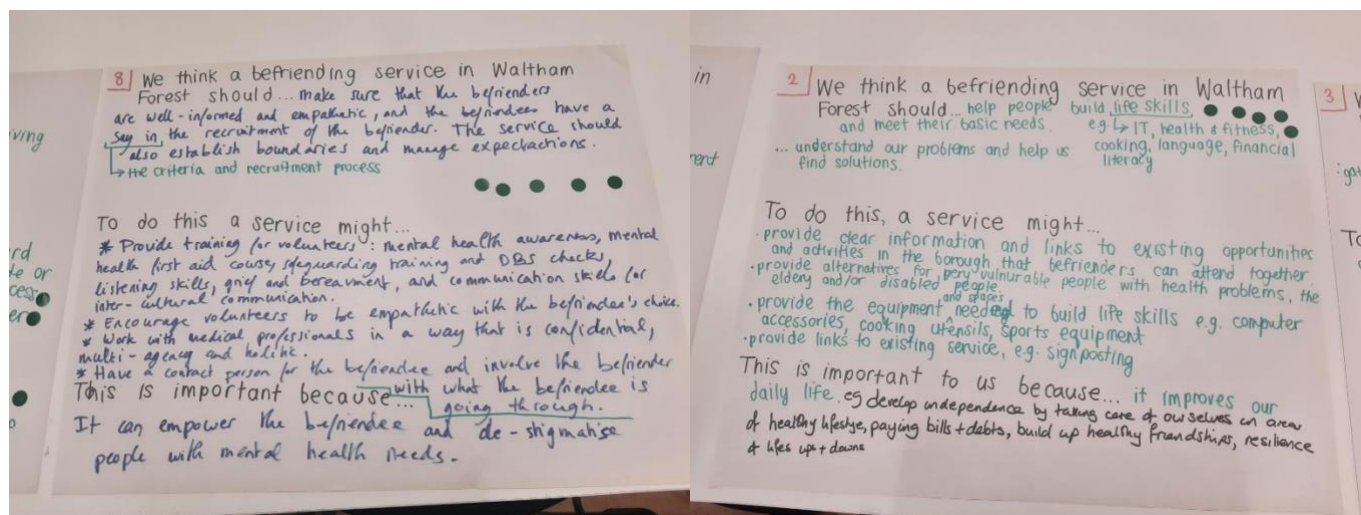 iving
rd
te or
cess
er
8
We think a befriending service in Waltham
Forest should... make sure that the befrienders
are well-informed and empathetic, and the befriendees have a
say in the recruitment of the befriender. The service should
also establish boundaries and manage expectations.
↳ the criteria and recruitment process
To do this a service might...
* Provide training for volunteers: mental health awareness, mental
health first aid course, safeguarding training and DBS checks,
listening skills, grief and bereavement, and communication skills for
inter-cultural communication.
* Encourage volunteers to be empathetic with the befriendee's choice.
* Work with medical professionals in a way that is confidential,
multi-agency and holistic.
* Have a contact person for the befriendee and involve the befriender
with what the befriendee is
going through.
This is important because...
It can empower the befriendee and de-stigmatise
people with mental health needs.
in
ent
2
We think a befriending service in Waltham
Forest should... help people build life skills
and meet their basic needs. eg ↳ IT, health & fitness,
... understand our problems and help us cooking, language, financial
find solutions. literacy
To do this, a service might...
· provide clear information and links to existing opportunities
and activities in the borough that befrienders can attend together
· provide alternatives for very vulnurable people with health problems, the
eldery and/or disabled people.
and spaces
· provide the equipment needed to build life skills e.g. computer
accessories, cooking utensils, sports equipment
· provide links to existing service, e.g. signposting
This is important to us because... it improves our
daily life. eg develop independence by taking care of ourselves in areas
of healthy lifestye, paying bills + debts, build up healthy friendships, resilience
of lifes ups + downs
3
To